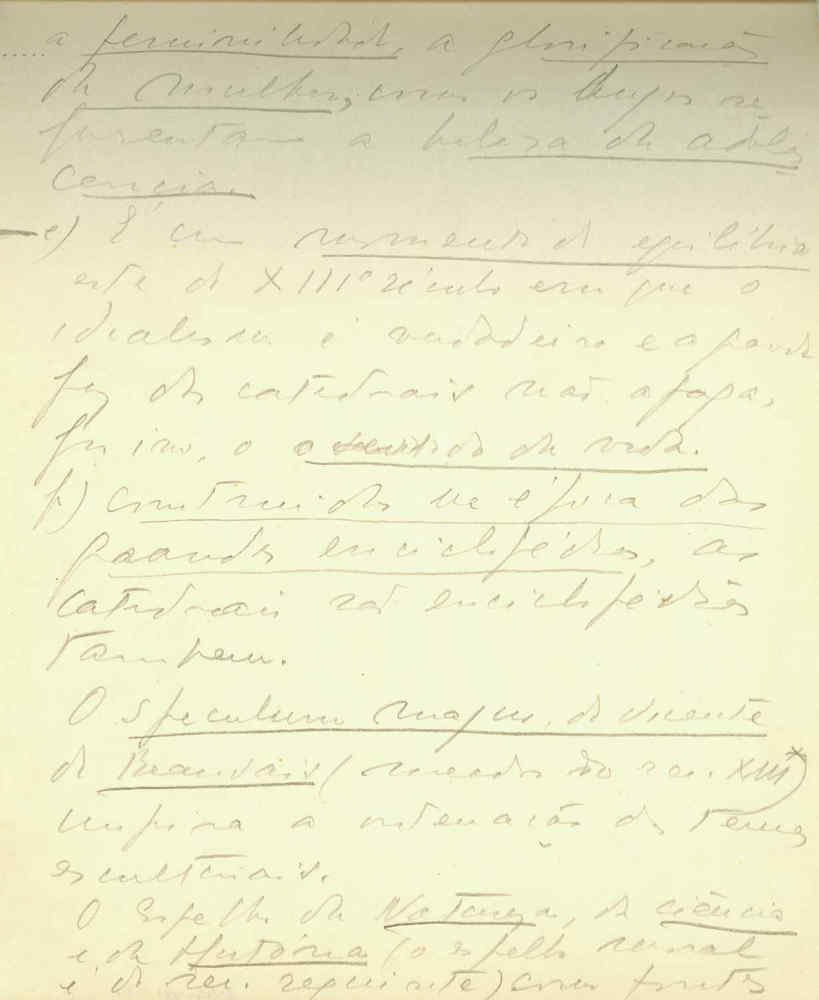 ..... a feminilidade, a glorificação
da mulher, como os Anjos re-
presentam a beleza da adoles
cencia.
e) É um momento de equilíbrio
este do XIIIº século em que o
idealismo é verdadeiro e a
fé das catedrais não apaga,
por isso, o sentido da vida.
f) construidas na época das
grandes enciclopédias, as
catedrais são enciclopédias
tambem.
O Speculum majus, de Vicente
de Beauvais (meados do sec. XIII*)
inspira a ordenação dos temas
esculturais.
O Espelho da Natureza, da ciência
e da História (o espelho moral
é do sec. seguinte) como fontes